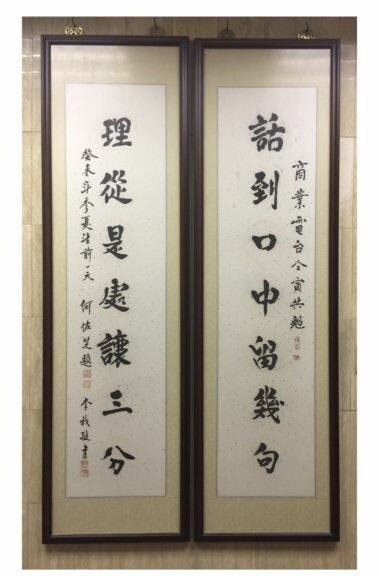 商業電台仝寅共勉
話到口中留幾句
理從是處讓三分
癸未年季夏望前一天 何佐芝題 李我敬書